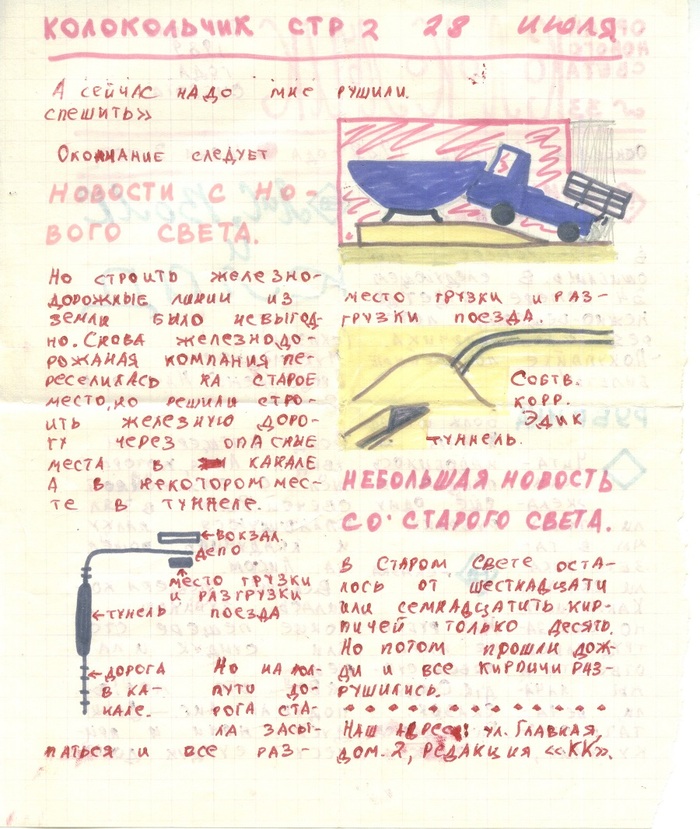 КОЛОКОЛЬЧИК СТР 2 28 ИЮЛЯ
А СЕЙЧАС НАДО МНЕ
СПЕШИТЬ»
ОКОНЧАНИЕ СЛЕДУЕТ
НОВОСТИ С НО-
ВОГО СВЕТА.
НО СТРОИТЬ ЖЕЛЕЗНО-
ДОРОЖНЫЕ ЛИНИИ ИЗ
ЗЕМЛИ БЫЛО НЕВЫГОД-
НО. СНОВА ЖЕЛЕЗНОДО-
РОЖНАЯ КОМПАНИЯ ПЕ-
РЕСЕЛИЛАСЬ НА СТАРОЕ
МЕСТО, НО РЕШИЛИ СТРО-
ИТЬ ЖЕЛЕЗНУЮ ДОРО-
ГУ ЧЕРЕЗ ОПАСНЫЕ
МЕСТА В КАНАЛЕ
А В НЕКОТОРОМ МЕС-
ТЕ В ТУННЕЛЕ.
ВОКЗАЛ.
ДЕПО
МЕСТО ГРУЗКИ
И РАЗГРУЗКИ
ПОЕЗДА
ТУНЕЛЬ
ДОРОГА
В КА-
НАЛЕ.
НО НА ПОЛ-
ПУТИ ДО-
РОГА СТА-
ЛА ЗАСЫ-
ПАТЬСЯ И ВСЕ РАЗ-
РУШИЛИ.
МЕСТО ГРУЗКИ И РАЗ-
ГРУЗКИ ПОЕЗДА.
СОБТВ.
КОРР.
ЭДИК
ТУННЕЛЬ.
НЕБОЛЬШАЯ НОВОСТЬ
СО СТАРОГО СВЕТА.
В СТАРОМ СВЕТЕ ОСТА-
ЛОСЬ ОТ ШЕСТНАДЦАТИ
ИЛИ СЕМНАДЦАТИТЬ КИР-
ПИЧЕЙ ТОЛЬКО ДЕСЯТЬ.
НО ПОТОМ ПРОШЛИ ДОЖ-
ДИ И ВСЕ КИРПИЧИ РАЗ-
РУШИЛИСЬ.
НАШ АДРЕС: УЛ. ГЛАВНАЯ,
ДОМ 2, РЕДАКЦИЯ «КК».